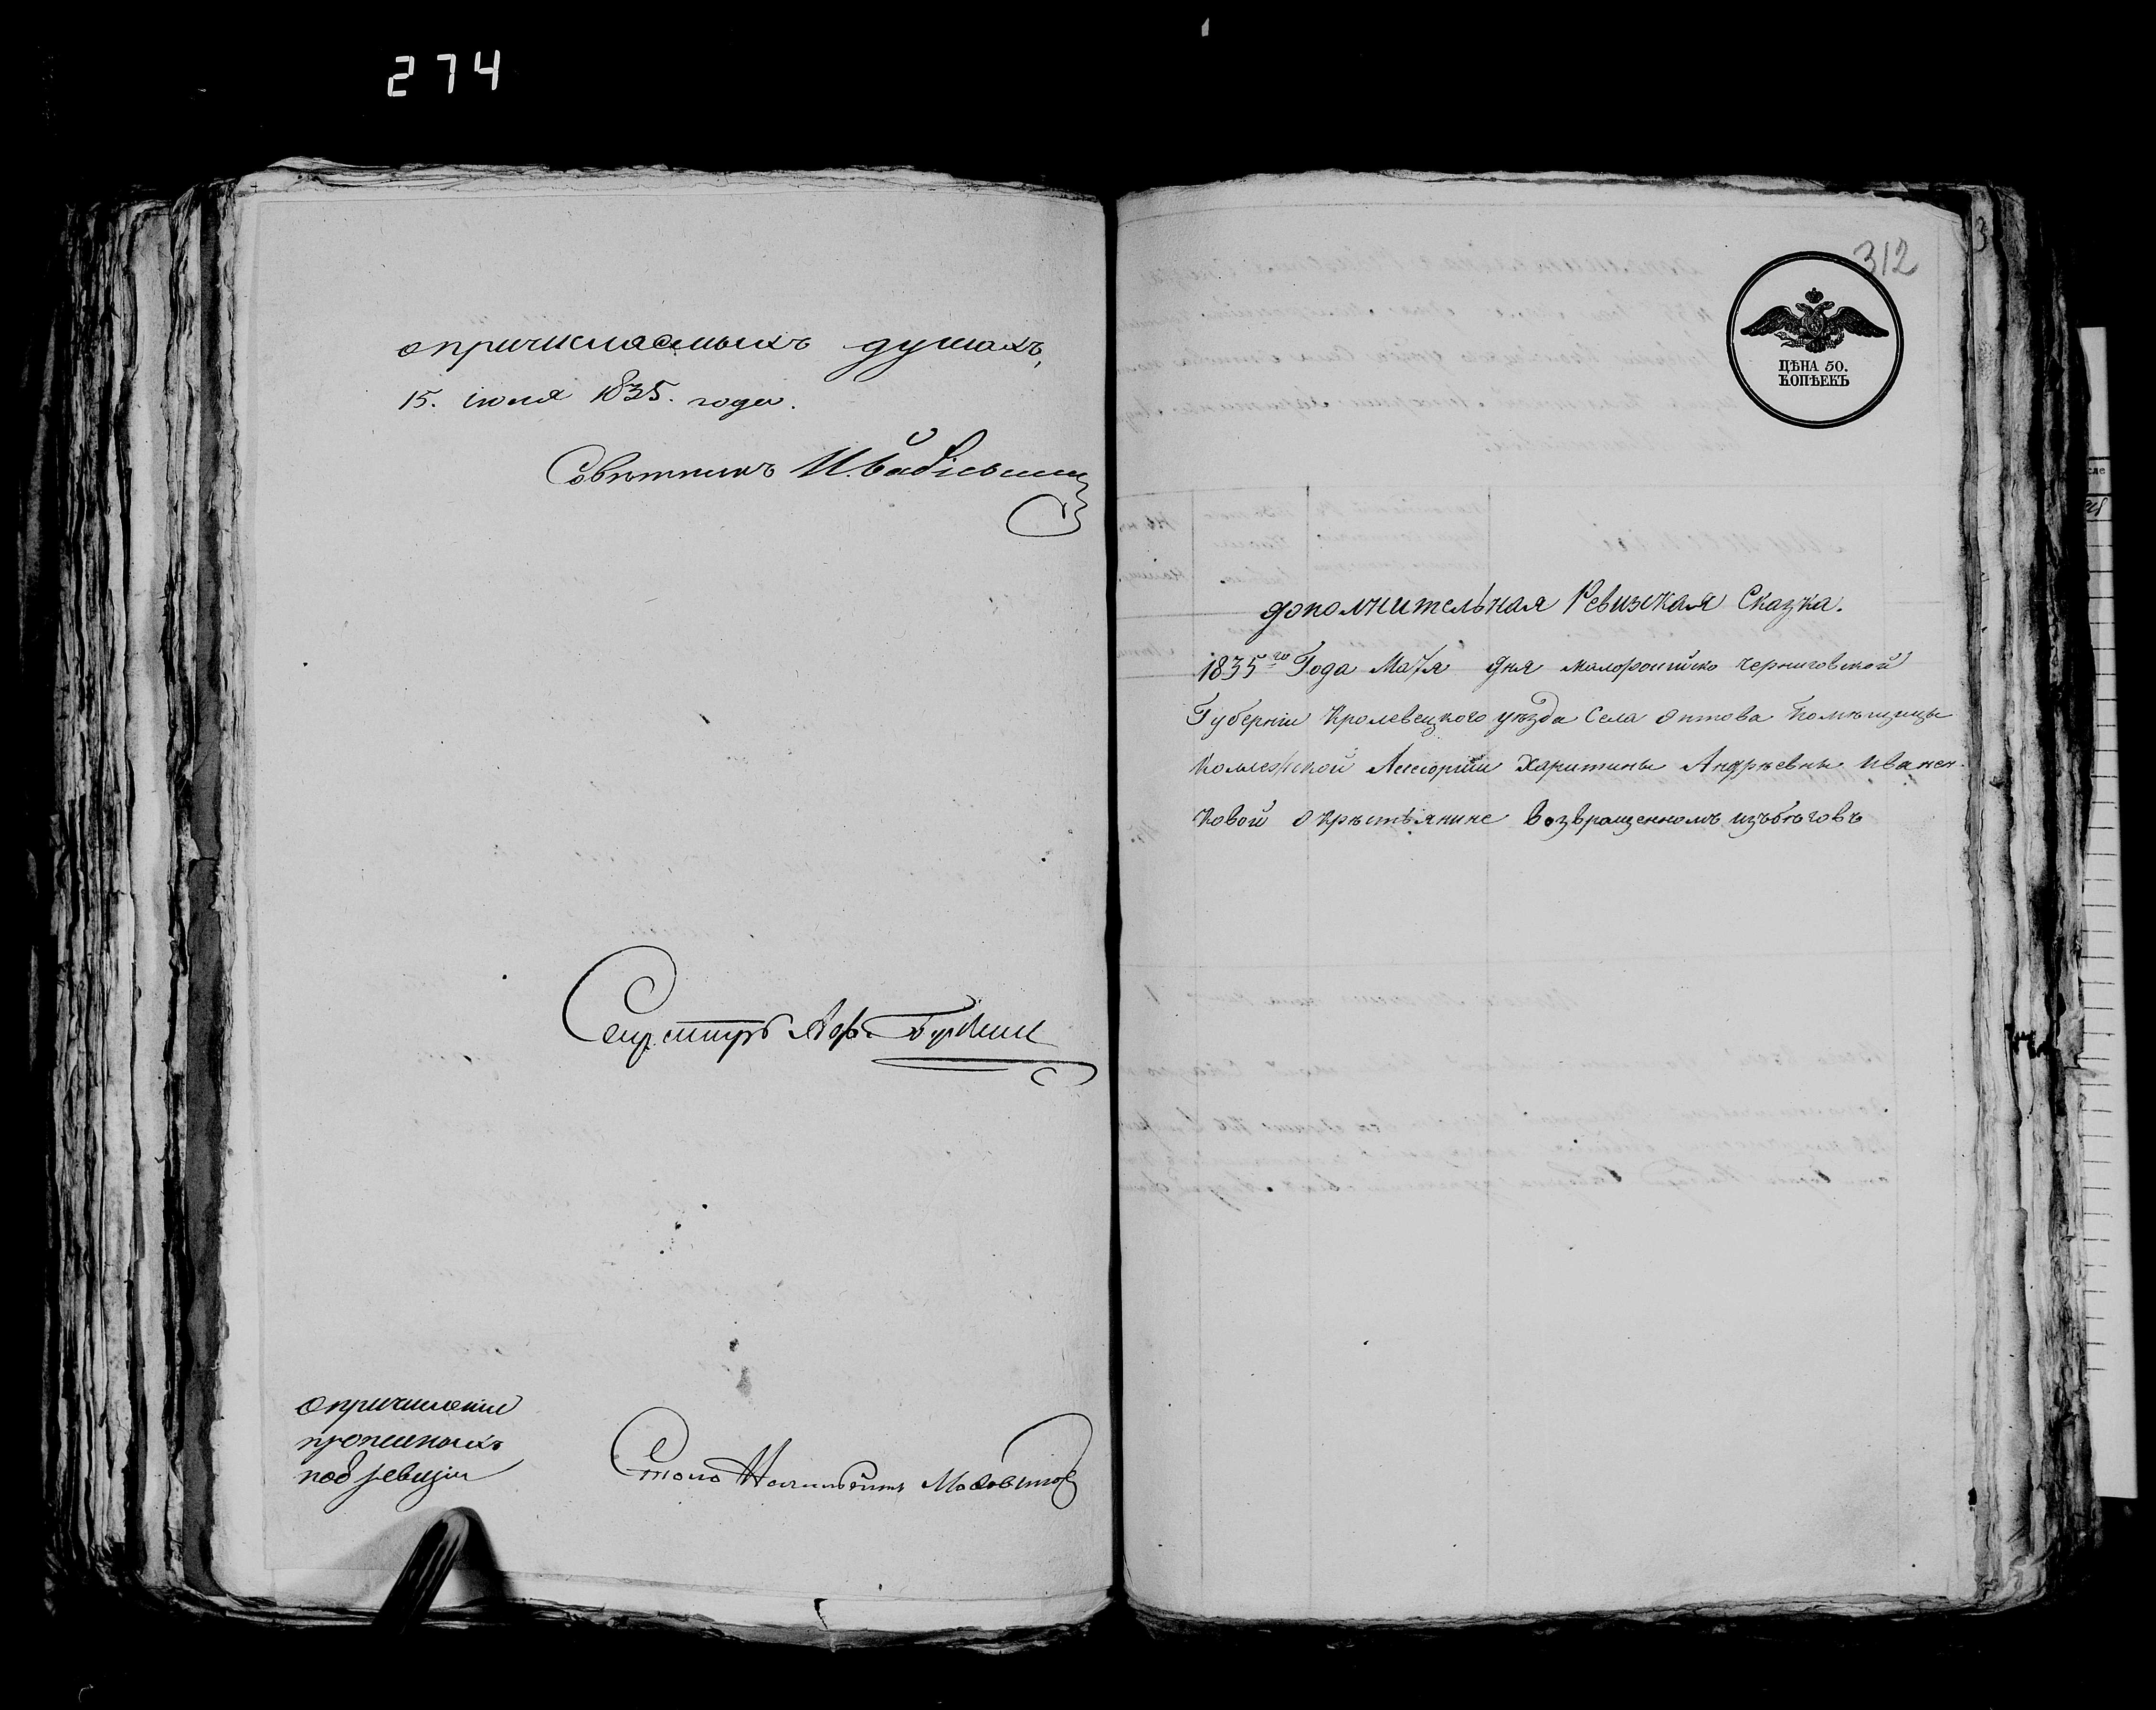 274
о причисляемыхъ душахъ,
15. июля 1835. года.
Совѣтникъ И.
Секретарь
о причисленіи
прописныхъ
по 8 ревизіи
Столоначальникъ
312
ЦѢНА 50.
КОПѢЕКЪ
дополнительная Ревизская Сказка.
1835го Года Маія дня малороссійско черниговской
Губерніи Кролевецкого уѣзда Села Оптова Помѣщицы
Коллежской Асессорши Харитины Андрѣевны Иванен-
ковой о крѣстьянине возвращенномъ изъ бѣговъ